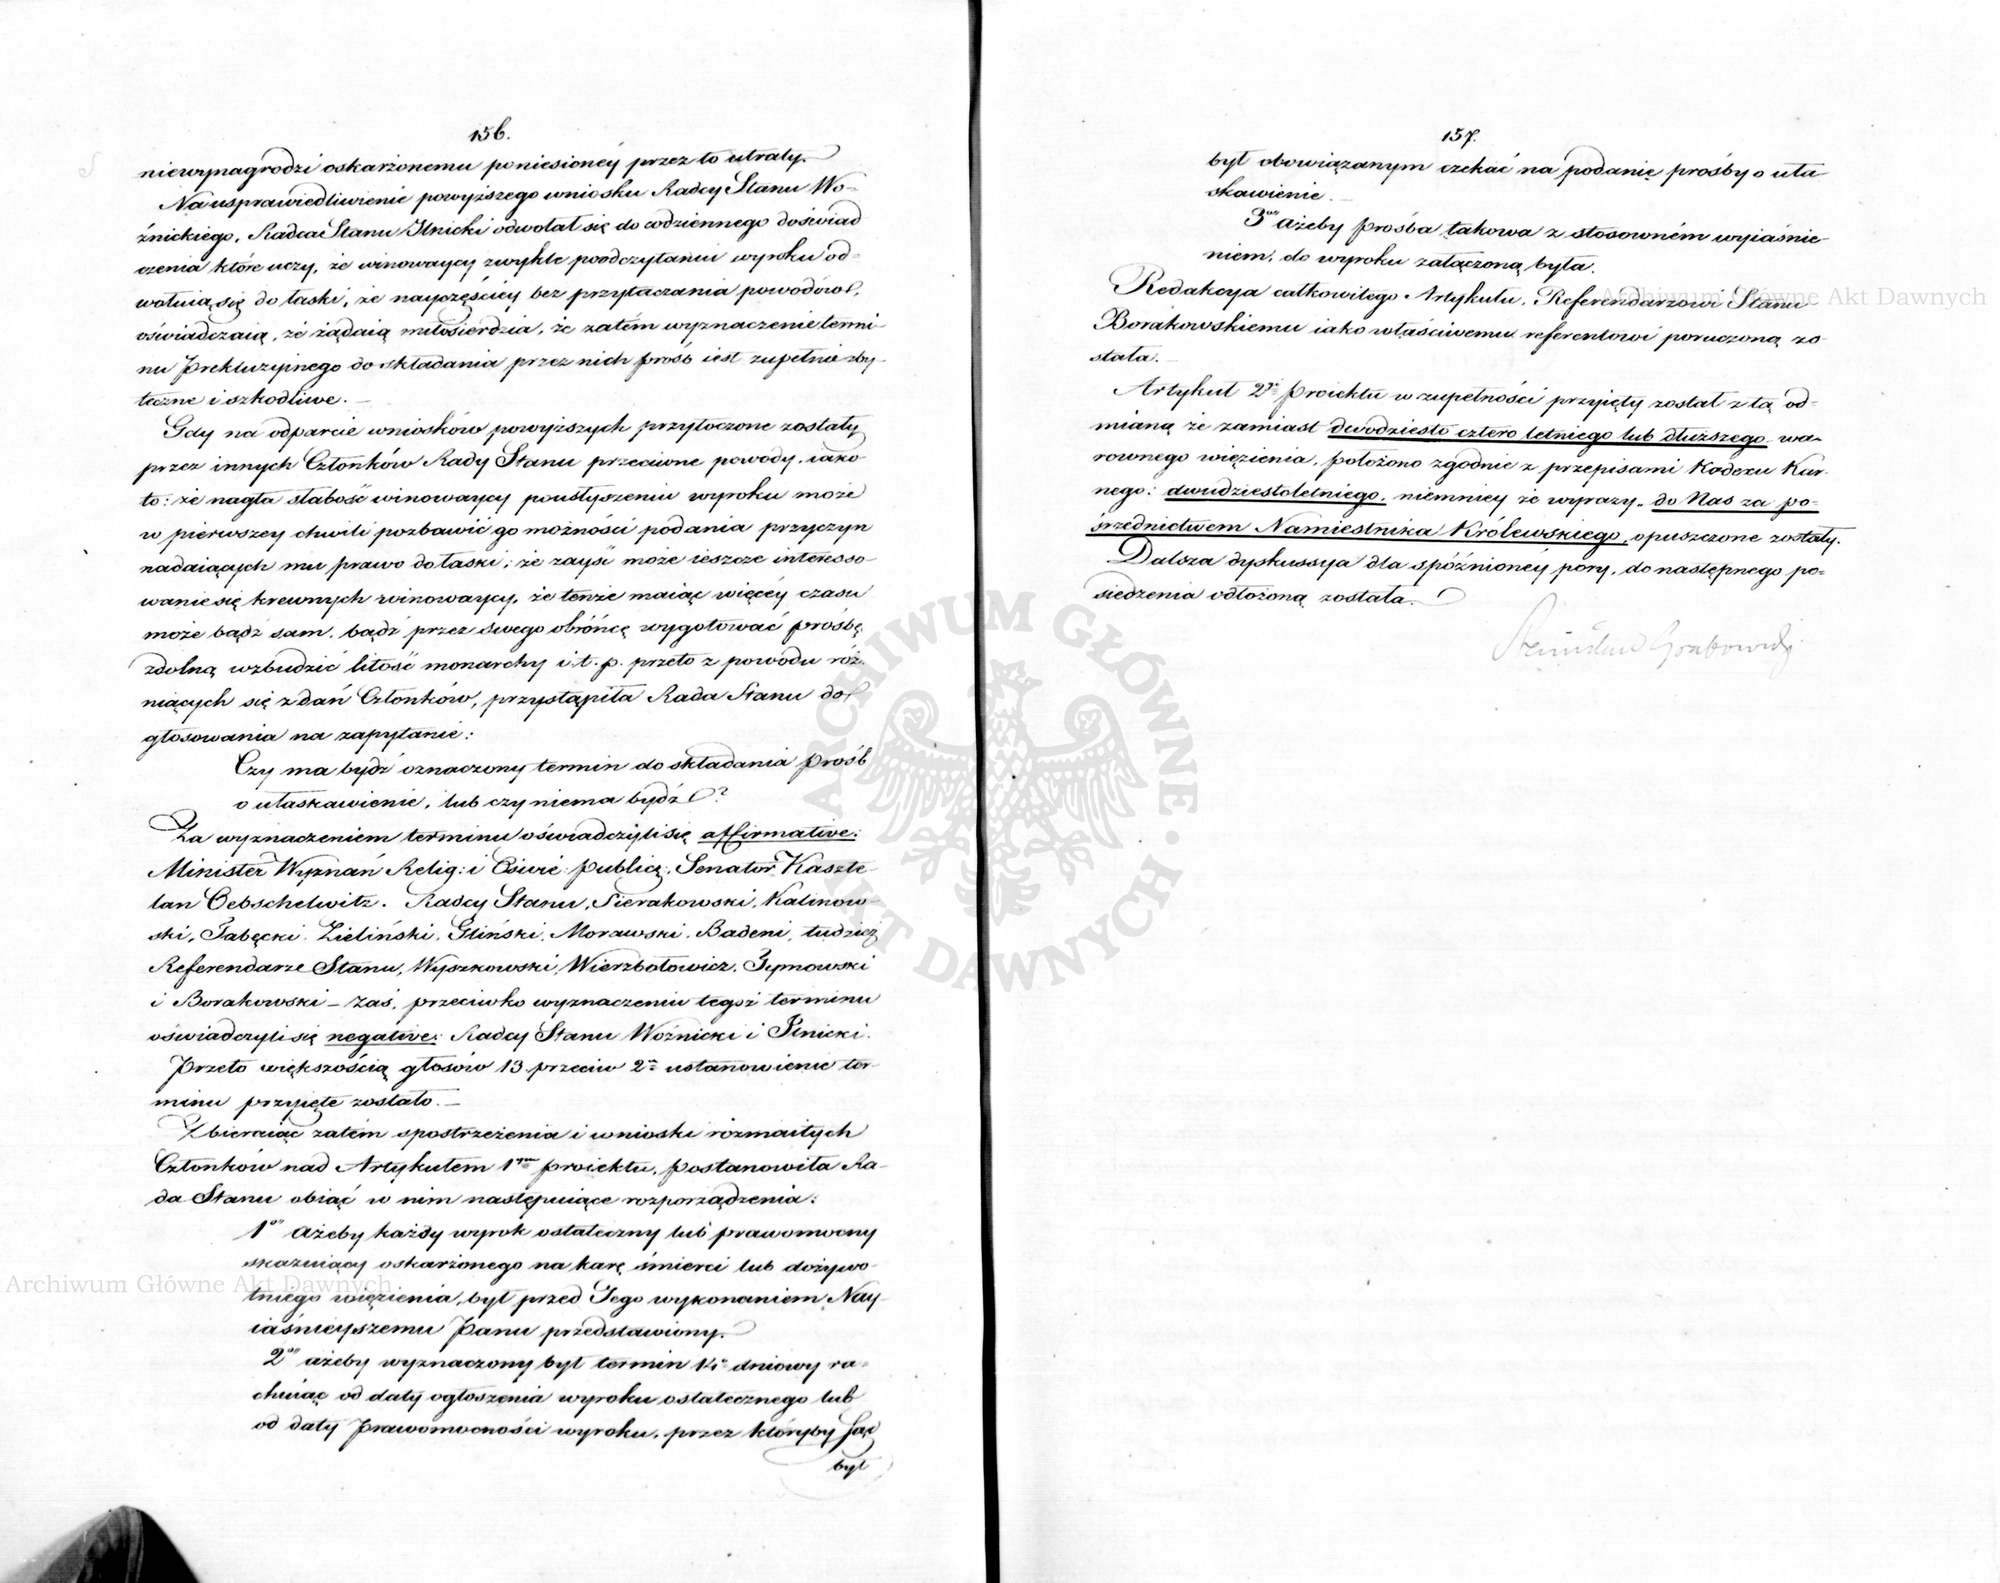 156.
niewynagrodzi oskarżonemu poniesionéy przez to utraty.
Na usprawiedliwienié powyższego wniosku Radcy Stanu Wo-
źnickiego, Radca Stanu Ilnicki odwołał się do codziennego doświad
czenia które uczy, że winowaycy zwykle poodczytaniu wyroku od-
wołuią się do łaski, że nayczęściéy bez przytaczania powodów,
oświadczaią, że żądaią miłosierdzia, że zatém wyznaczenie termi-
nu prekluzyinego do składania przez nich prośb iest zupełnie zby-
teczne i szkodliwe. —
Gdy na odparcie wniosków powyższych przytoczone zostały
przez innych Członków Rady Stanu przeciwne powody, iako
to: że nagła słabość winowaycy pousłyszeniu wyroku może
w pierwszey chwili pozbawić go możności podania przyczyn
nadaiących mu prawo do łaski; że zayść może ieszcze interesso-
wanie się krewnych winowaycy, że tenże maiąc więcéy czasu
może bądź sam, bądź przez swego obróńcę wygotować prośbę
zdolną wzbudzić litość monarchy i.t.p. przeto z powodu róż-
niących się zdań Członków, przystąpiła Rada Stanu do
głosowania na zapytanie:
Czy ma bydź oznaczony termin do składania prośb
o ułaskawienie, lub czy niema bydź?
Za wyznaczeniem terminu oświadczyli się affirmative:
Minister Wyznań Relig: i Oświé: publicz: Senator Kaszte-
lan Oebschelwitz. Radcy Stanu, Sierakowski, Kalinow-
ski, Tabęcki, Zieliński, Gliński, Morawski, Badeni, tudzież
Referendarze Stanu, Wyszkowski, Wierzbołowicz, Tymowski
i Borakowski – zaś, przeciwko wyznaczeniu tegoż terminu
oświadczyli się negative: Radcy Stanu Woźnicki i Ilnicki.
Przeto większością głosów 13 przeciw 2m ustanowienie ter-
minu przyięte zostało. —
Zbieraiąc zatém spostrzeżenia i wnioski rozmaitych
Członków nad Artykułem 1ym proiektu, postanowiła Ra-
da Stanu obiąć w nim następuiące rozporządzenia:
1o Ażeby każdy wyrok ostateczny lub prawomocny
skazuiący oskarżonego na karę śmierci lub dożywo-
tniego więzienia, był przed Jego wykonaniem Nay-
iaśnieyszemu Panu przedstawiony.
2o ażeby wyznaczony był termin 14o dniowy ra-
chuiąc od daty ogłoszenia wyroku ostatecznego lub
od daty prawomocności wyroku, przez któryby Sąd
był
157.
był obowiązanym czekać na podanie prośby o uła
skawienie. —
3o ażeby prośba takowa z stosowném wyiaśnie-
niem, do wyroku załączoną była.
Redakcya całkowitego Artykułu, Referendarzowi Stanu
Borakowskiemu iako właściwemu referentowi poruczoną zo-
stała. —
Artykuł 2gi Proiektu w zupełności przyięty został z tą od-
mianą że zamiast dwódziesto cztero letniego lub dłuższego wa-
rownego więzienia, położono zgodnie z przepisami Kodexu Kar-
nego: dwudziestoletniego, niemniey że wyrazy „do Nas za po-
średnictwem Namiestnika Królewskiego, opuszczone zostały.
Dalsza dyskussya dla spóźnionéy pory, do następnego po-
siedzenia odłożoną została.
Stanisław Grabowski
Archiwum Główne Akt Dawnych
Archiwum Główne Akt Dawnych
ARCHIWUM GŁÓWNE AKT DAWNYCH